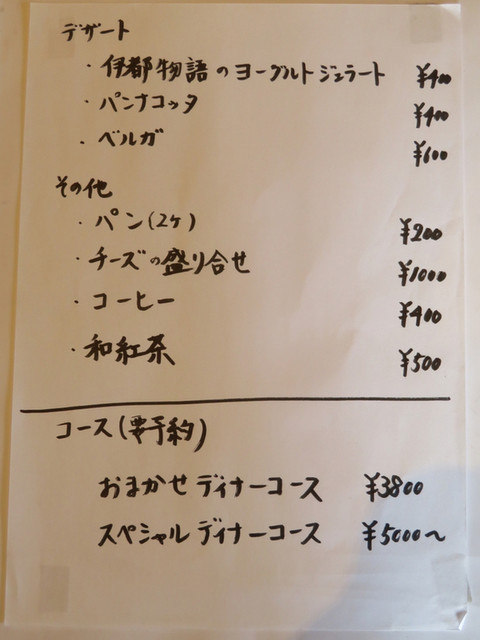 デザート
・伊都物語のヨーグルトジェラート ¥400
・パンナコッタ ¥400
・ベルガ ¥600
その他
・パン(2ケ) ¥200
・チーズの盛り合せ ¥1000
・コーヒー ¥400
・和紅茶 ¥500
コース(要予約)
おまかせディナーコース ¥3800
スペシャルディナーコース ¥5000〜